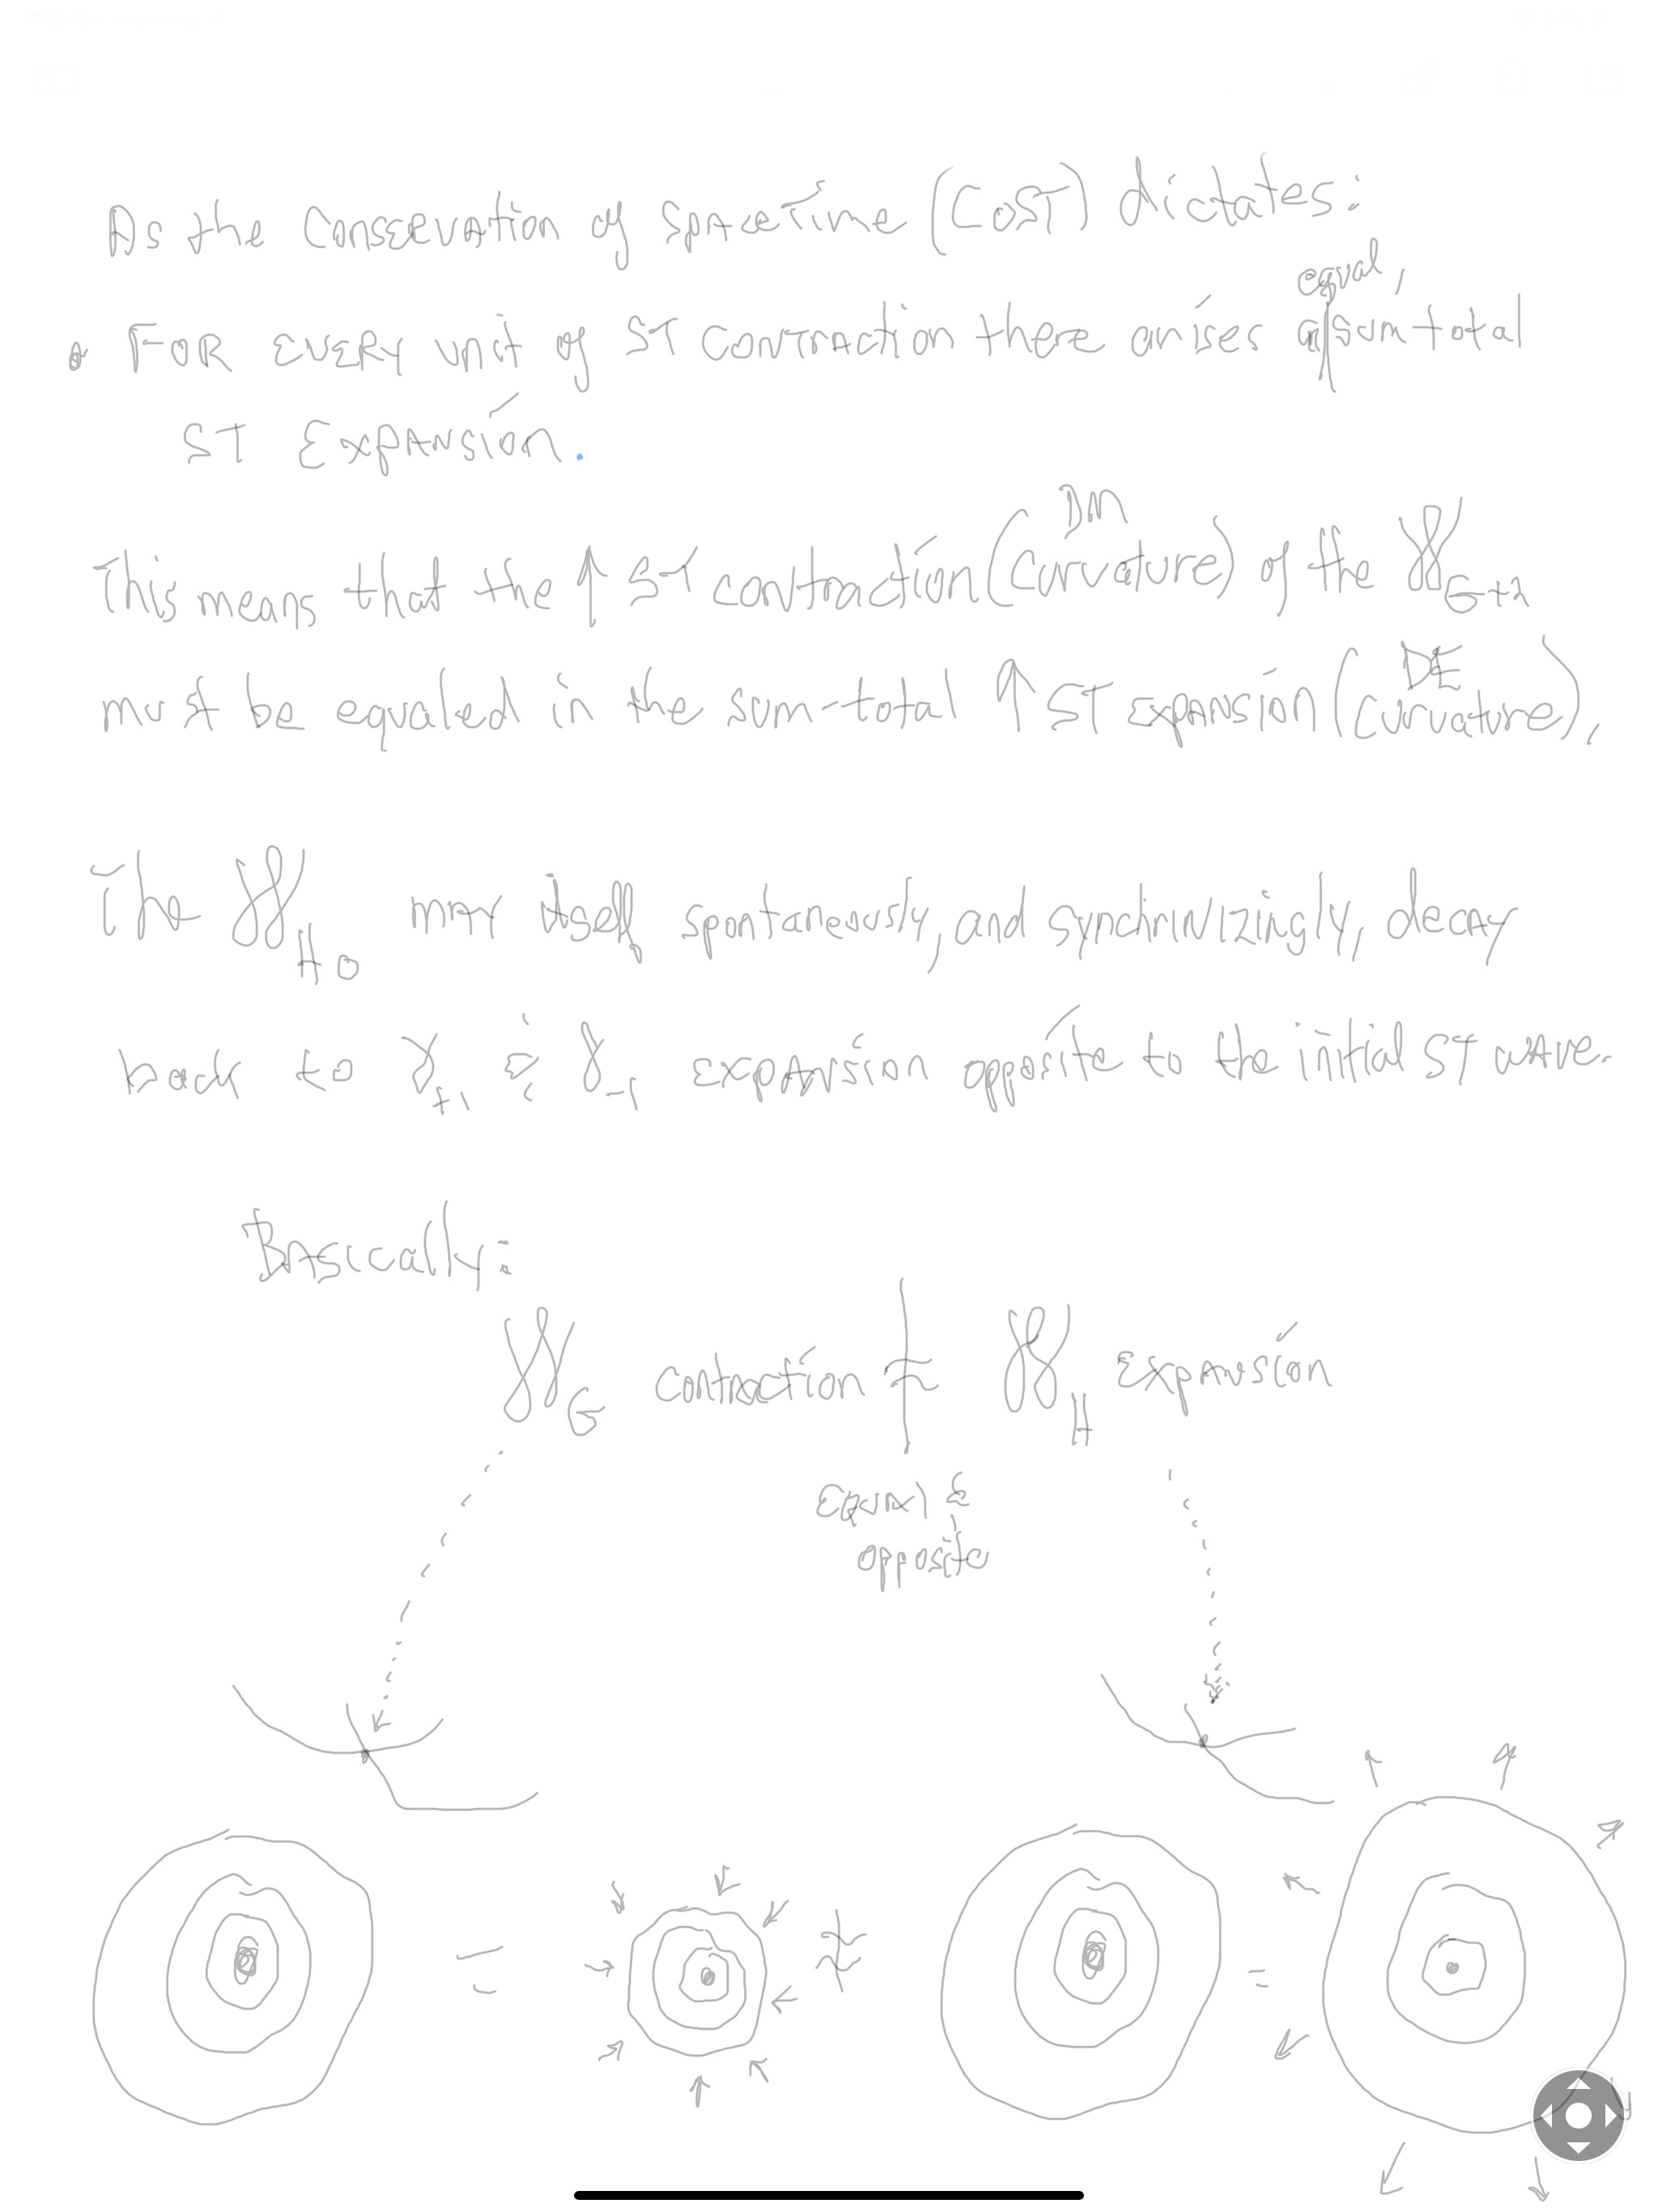 As the Conservation of Spacetime (CoST) dictates:
equal,
• For every unit of ST contraction there arises a sum-total
ST Expansion.
DM
This means that the ↑ ST contraction (curvature) of the γγ G+2
DE
must be equaled in the sum-total ↑ ST Expansion (curvature).
The γγ H0 may itself spontaneously, and synchrinizingly, decay
back to γ+1 & γ-1 expansion opposite to the initial ST wave.
Basically:
γγ G contraction γγ H expansion
Equal &
opposite
=
=